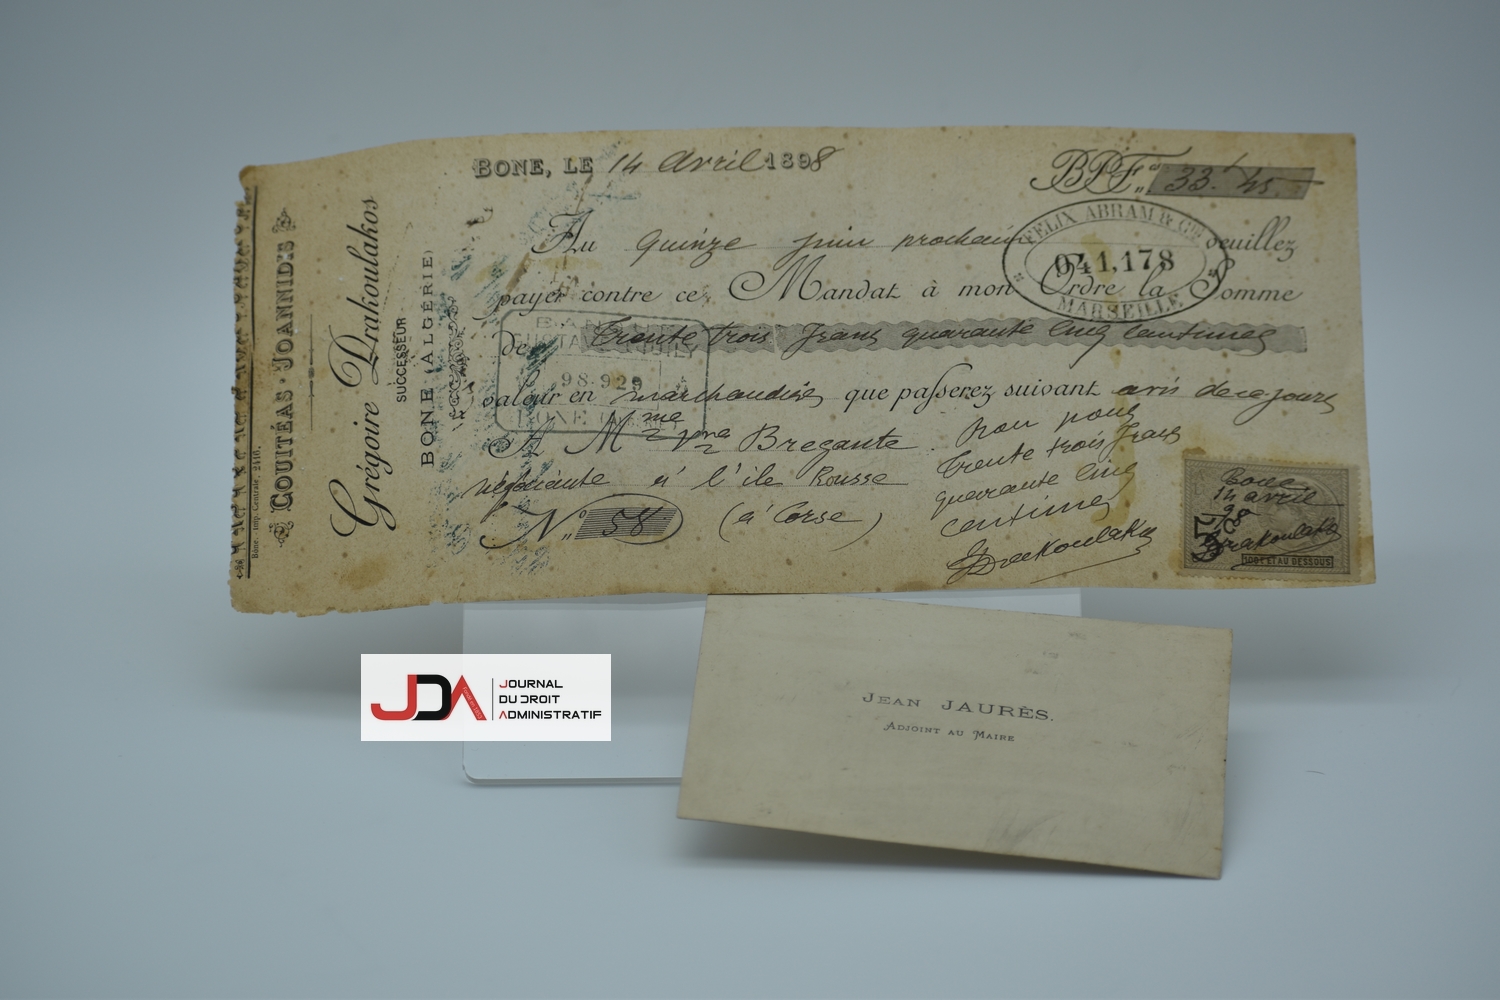 BONE, LE 14 Avril 1898
BPF. 33.45.
Au quinze juin prochain veuillez
payer contre ce Mandat à mon Ordre la Somme
de trente trois frans quarante cinq centimes
valeur en marchandises que passerez suivant avis de ce jour
A Mme Vve Bregante
négociante à l'ile Rousse
(à Corse)
No. 58
Bon pour
trente trois frans
quarante cinq
centimes
Drakoulakos
GOUITÉAS-JOANNIDIS
Grégoire Drakoulakos
SUCCESSEUR
BONE (ALGÉRIE)
Bône. Imp. Centrale. 2416.
FELIX ABRAM & Cie
041,178
MARSEILLE
98.929
Bone
14 avril
98
Drakoulakos
100f ET AU DESSOUS
JDA
JOURNAL
DU DROIT
ADMINISTRATIF
JEAN JAURÈS.
ADJOINT AU MAIRE